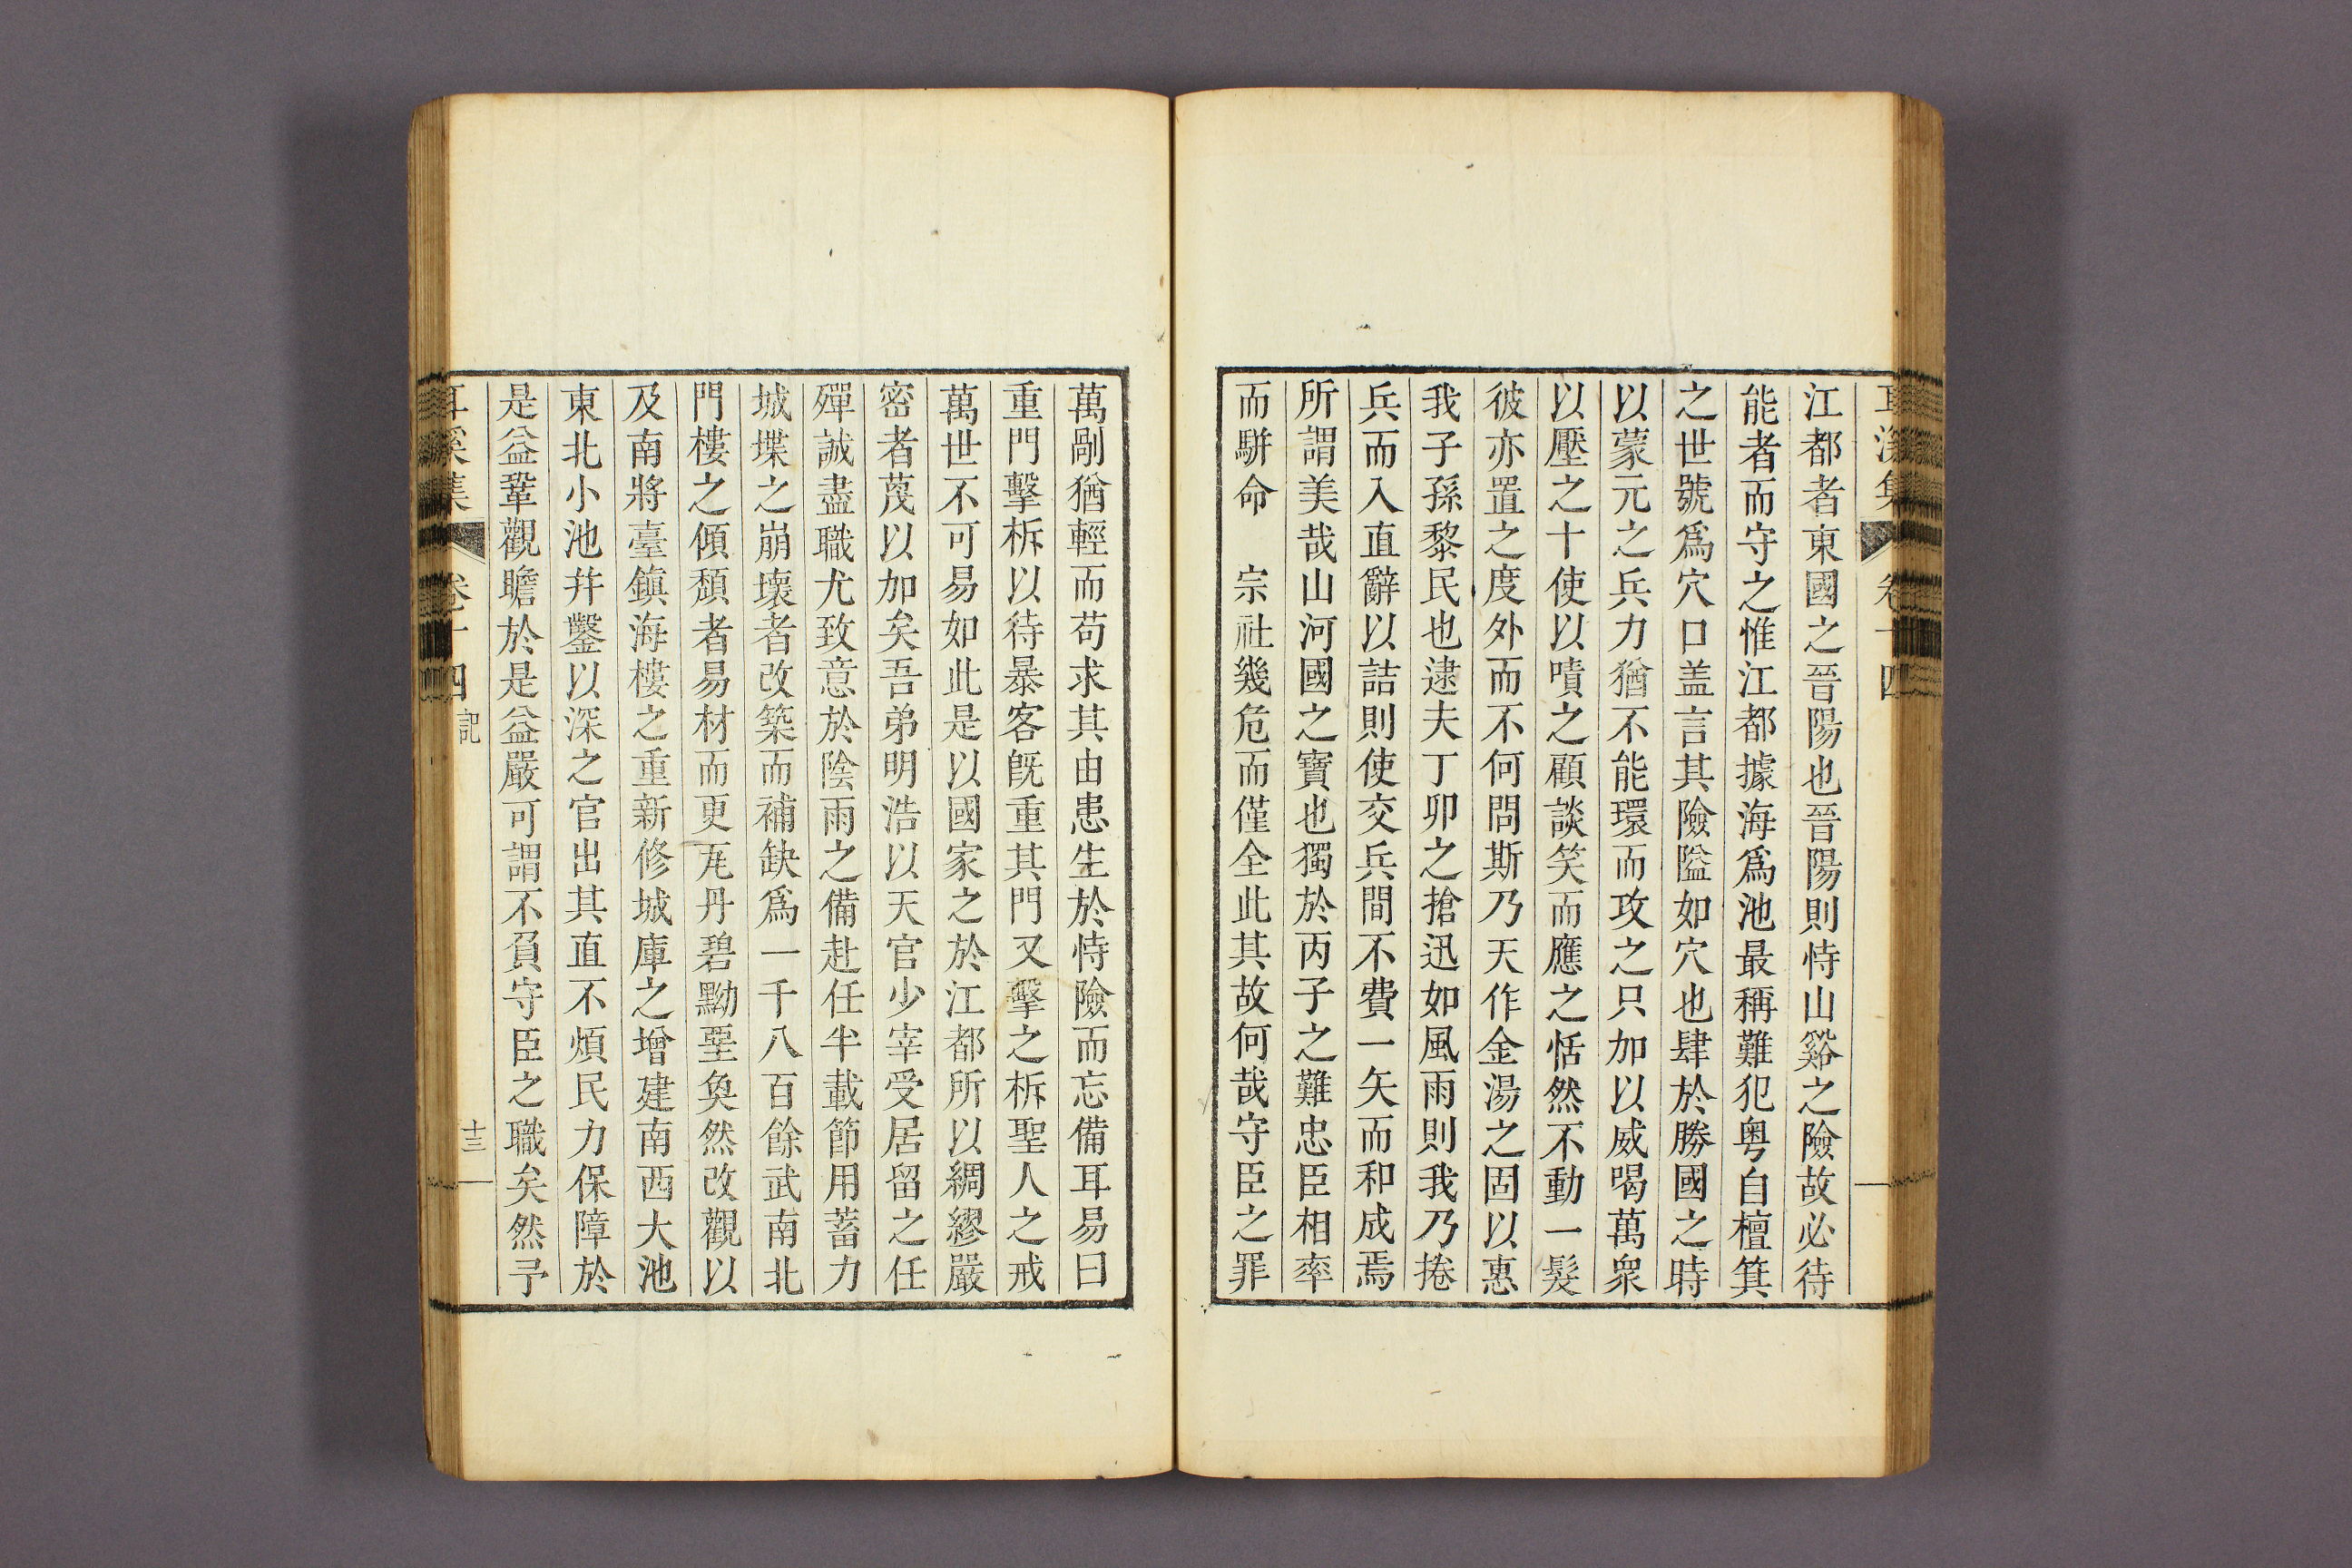 江都者東國之晉陽也晉陽則恃山谿之險故必待
能者而守之惟江都據海爲池最稱難犯粤自檀箕
之世號爲穴口盖言其險隘如穴也肆於勝國之時
以蒙元之兵力猶不能環而攻之只加以威喝萬衆
以壓之十使以嘖之顧談笑而應之恬然不動一髮
彼亦置之度外而不何問斯乃天作金湯之固以惠
我子孫黎民也逮夫丁卯之搶迅如風雨則我乃捲
兵而入直辭以詰則使交兵間不費一矢而和成焉
所謂美哉山河國之寶也獨於丙子之難忠臣相率
而騈命　宗社幾危而僅全此其故何哉守臣之罪
萬剮猶輕而苟求其由患生於恃險而忘備耳易曰
重門擊柝以待暴客旣重其門又擊之柝聖人之戒
萬世不可易如此是以國家之於江都所以綢繆嚴
密者蔑以加矣吾弟明浩以天官少宰受居留之任
殫誠盡職尤致意於陰雨之備赴任半載節用蓄力
城堞之崩壞者改築而補缺爲一千八百餘武南北
門樓之傾頹者易材而更瓦丹碧黝堊奐然改觀以
及南將臺鎭海樓之重新修城庫之增建南西大池
東北小池幷鑿以深之官出其直不煩民力保障於
是益鞏觀瞻於是益嚴可謂不負守臣之職矣然予
耳溪集　卷十四 記　十三